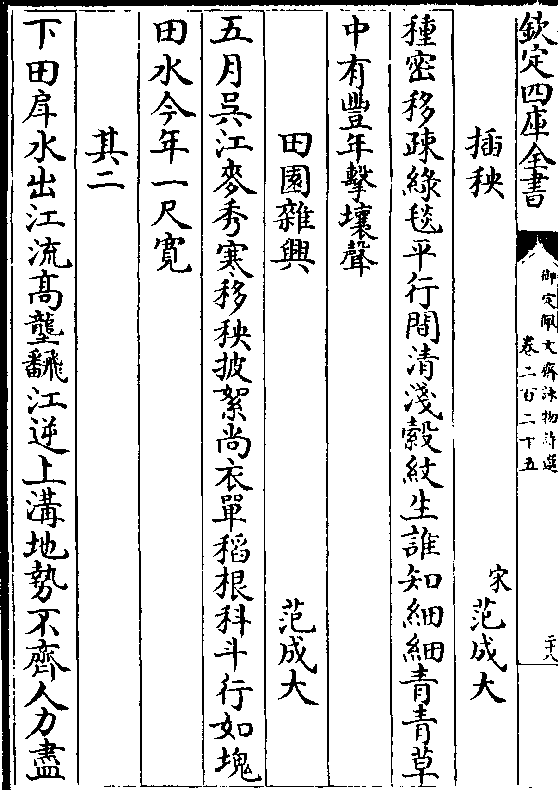 欽定四庫全書
御定佩文齋詠物詩選
卷二百二十五
二十八
插秧
宋 范成大
種密移疎綠毯平行間清淺縠紋生誰知細細青青草
中有豐年擊壤聲
田園雜興
范成大
五月吳江麥秀寒移秧披絮尚衣單稻根科斗行如塊
田水今年一尺寬
其二
下田戽水出江流高壟飜江逆上溝地勢不齊人力盡